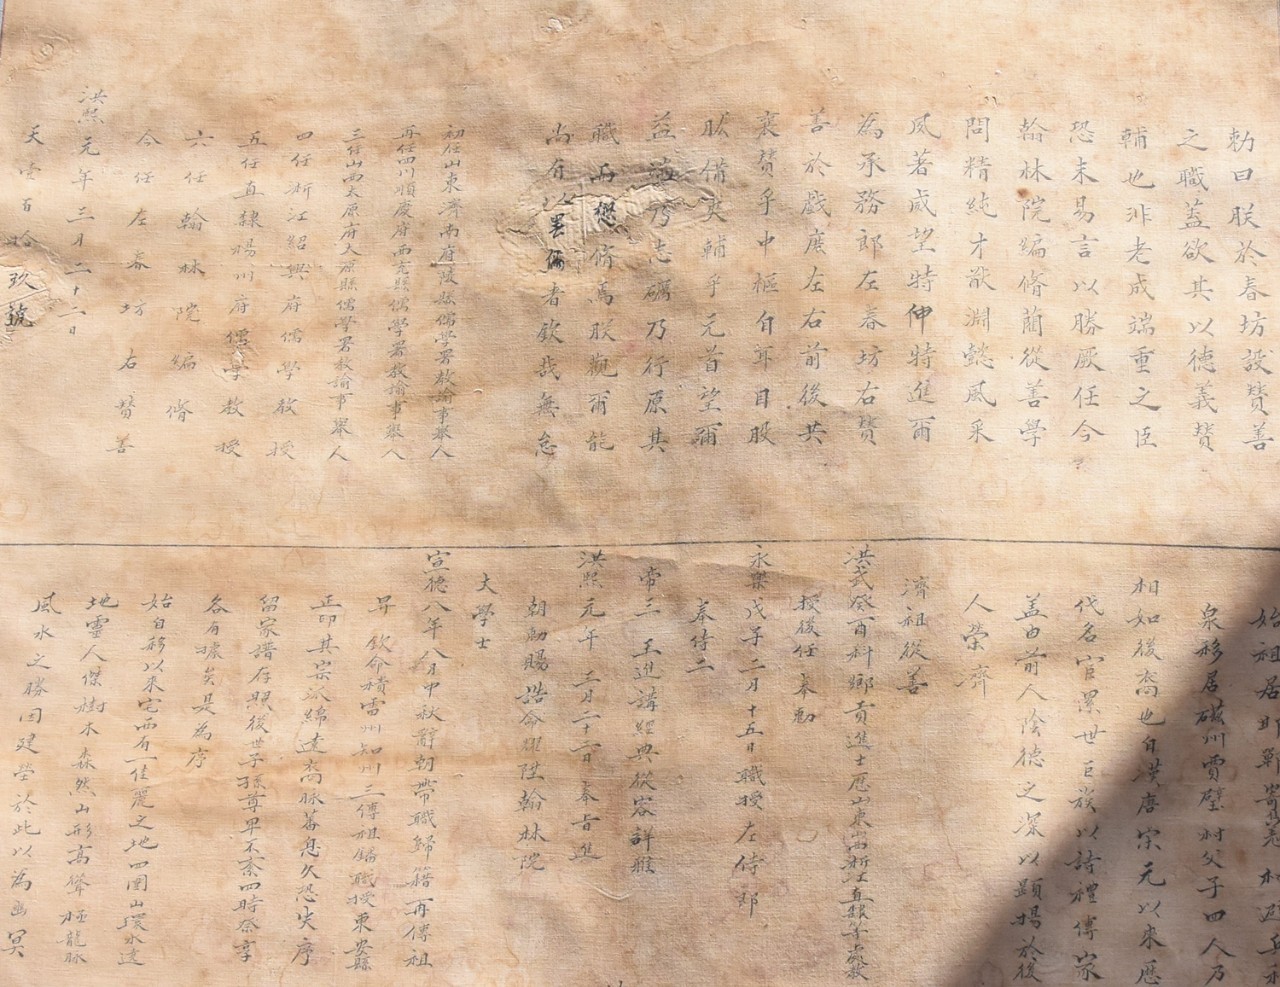 勅曰朕於春坊設贊善
之職蓋欲其以德義贊
輔也非老成端重之臣
恐未易言以勝厥任今
翰林院編脩藺從善學
問精純才猷淵懿風采
夙著咸望特伸特進爾
為承務郎左春坊右贊
善於戲庶左右前後共
襄贊乎中樞自耳目股
肱備夾輔乎元首望爾
益海乃志礪乃行原其
職而懋脩焉朕觀爾能
尚有以畀爾者欽哉無怠
初任山東濟南府陵縣儒學署教諭事舉人
再任四川順慶府西充縣儒學署教諭事舉人
三任山西太原府大原縣儒學署教諭事舉人
四任浙江紹興府儒學教授
五任直隸楊州府儒學教授
六任翰林院編脩
今任左春坊右贊善
洪熙元年三月二十二日
天壹百拾玖號
始祖居邯鄲
泉移居磁州賈璧村父子四人乃
相如後裔也自漢唐宋元以來歷
代名官累世巨族以詩禮傳家
蓋由前人陰德之深以顯揚於後
人榮濟
濟祖從善
洪武癸酉科鄉貢進士歷山東山西浙江直隸等處教
授後任奉勅
永樂戊子二月十五日職授左侍郎
奉侍二
帝三王進講經典從容詳雅
洪熙元年三月二十二日奉旨進
朝勅賜誥命擢陞翰林院
大學士
宣德八年八月中秋辭朝帶職歸籍再傳祖
昇欽命積雷州知州三傳祖鏞職授東安縣
正卯其宗派綿遠裔脉蕃息久恐失序
留家譜存照後世子孫尊卑不紊四時祭享
各有據矣是為序
始自移以來宅西有一佳麗之地四圍山環水遶
地靈人傑樹木森然山形高聳極龍脉
風水之勝因建塋於此以為幽冥